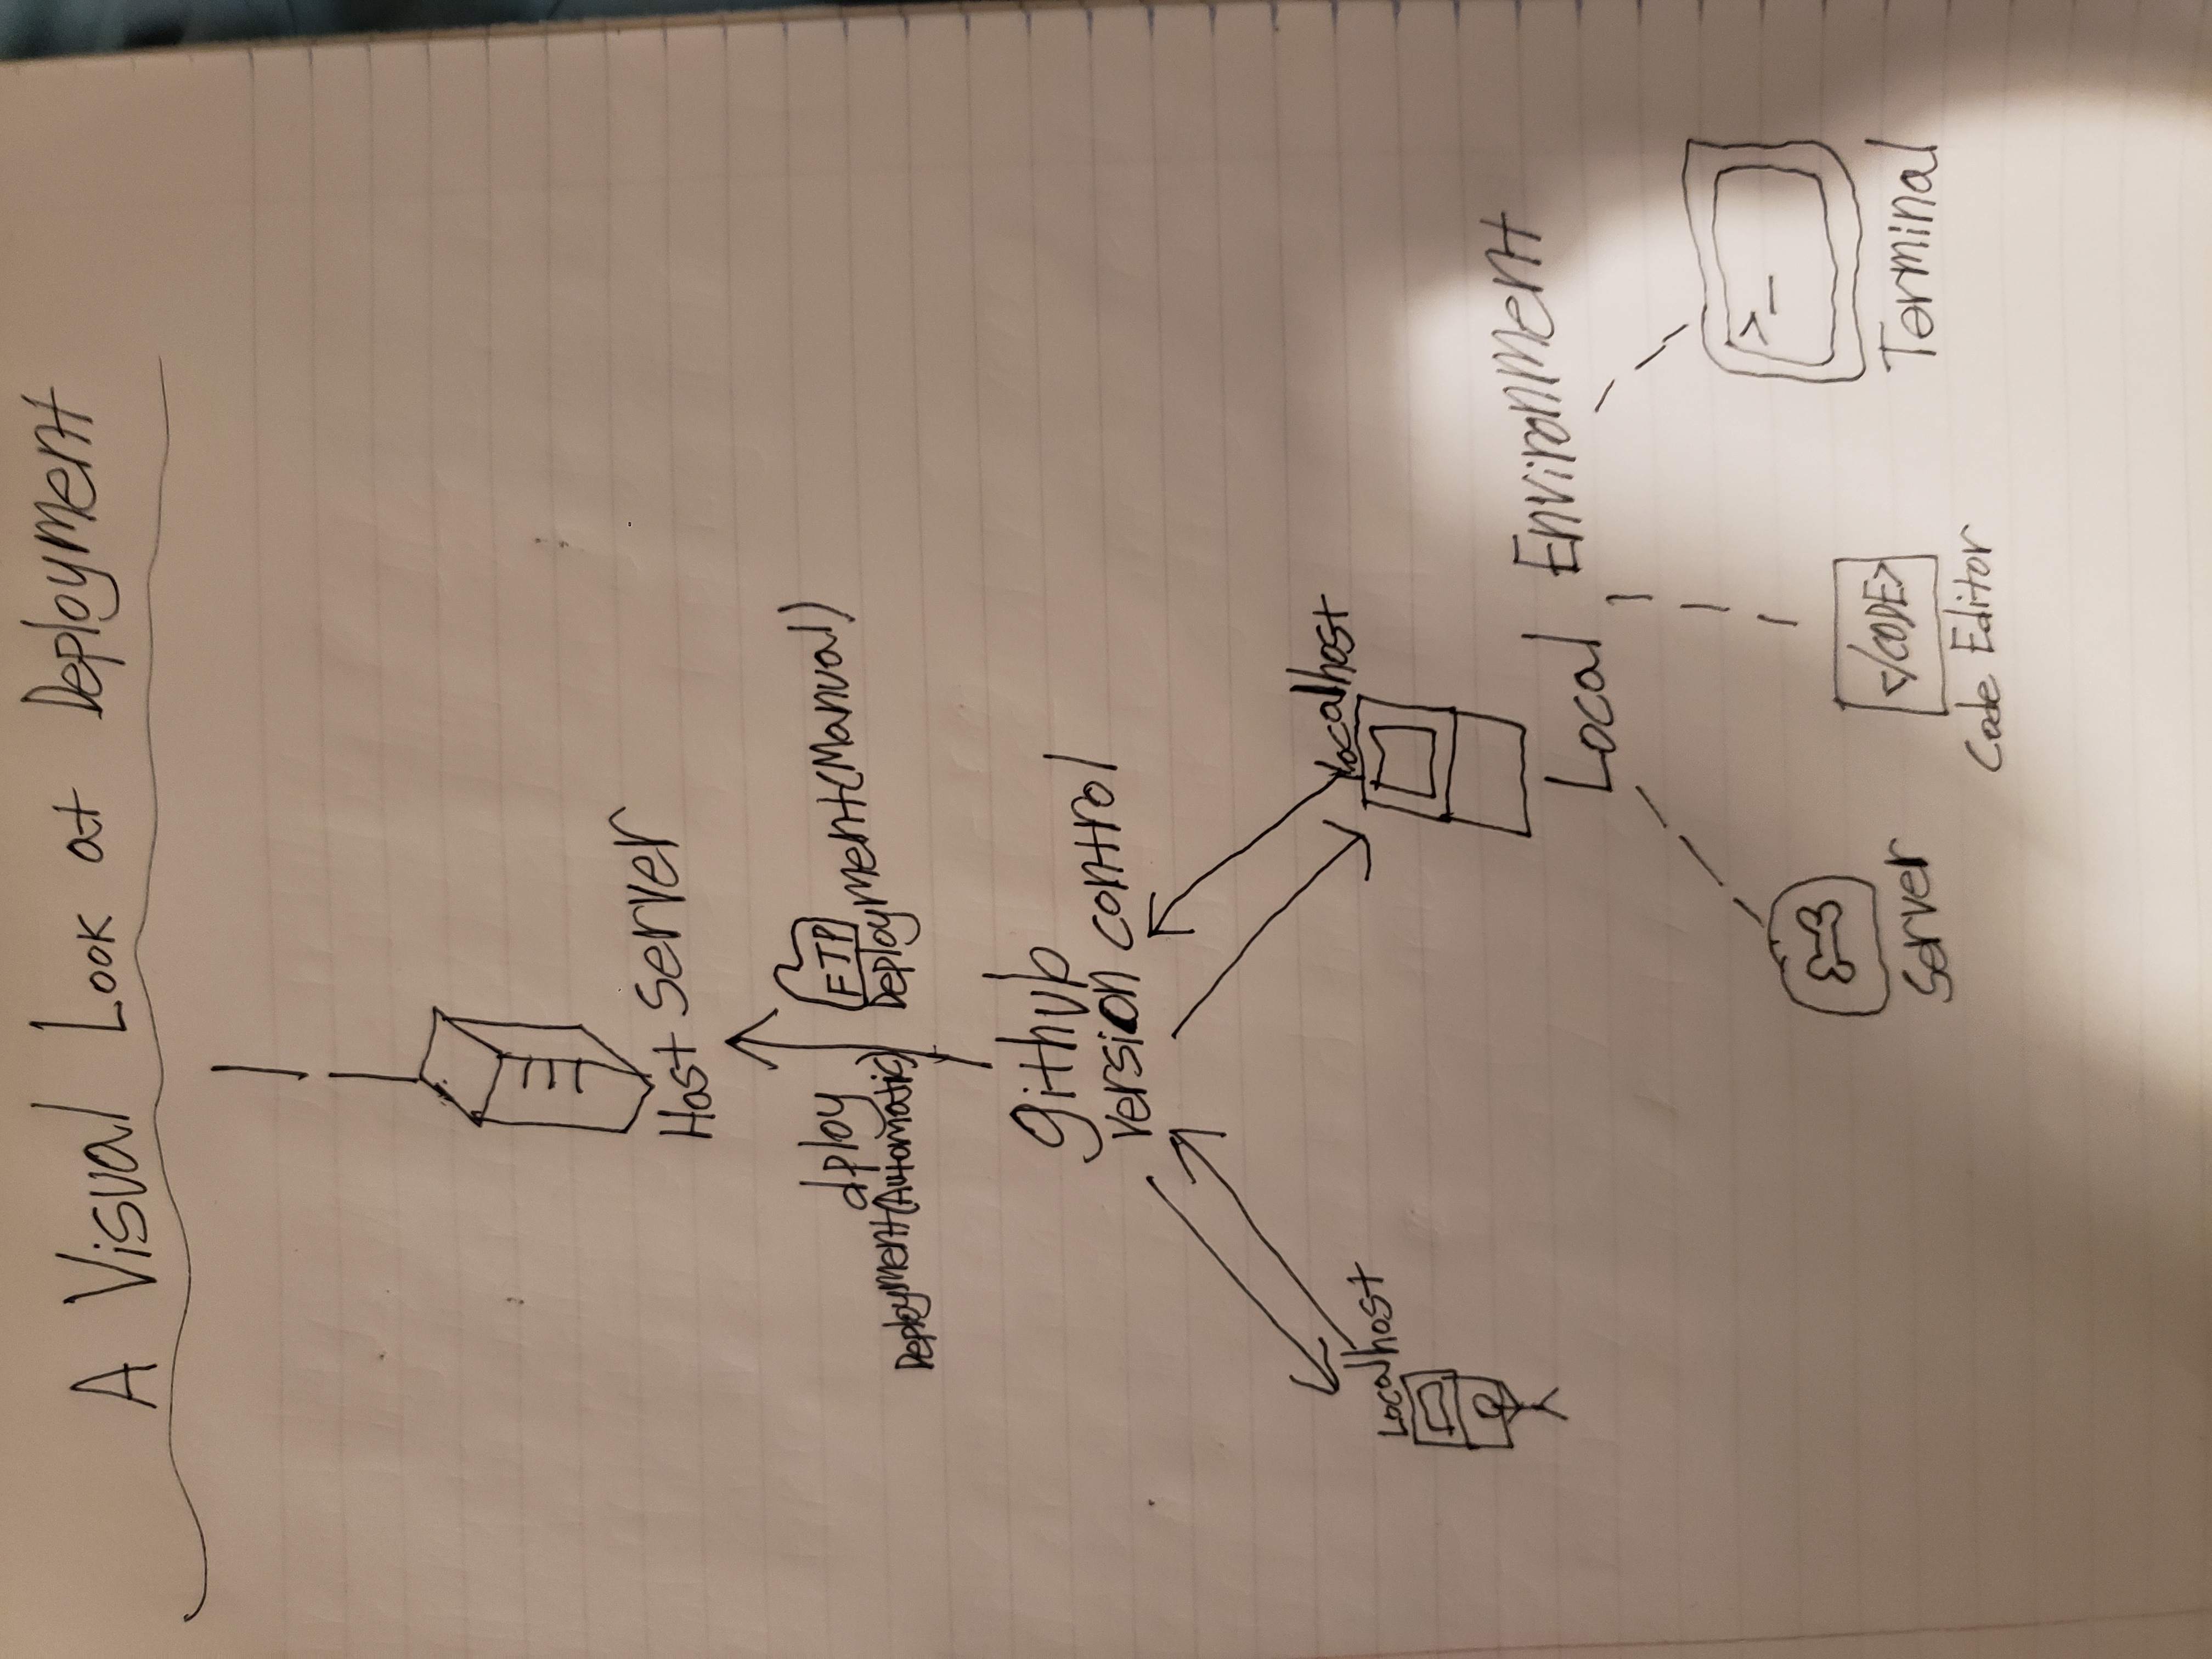 A Visual Look at Deployment
Host Server
dploy
Deployment(Automatic)
FTP
Deployment(Manual)
github
version control
Localhost
Localhost
Local Environment
Server
</CODE>
Code Editor
>_
Terminal